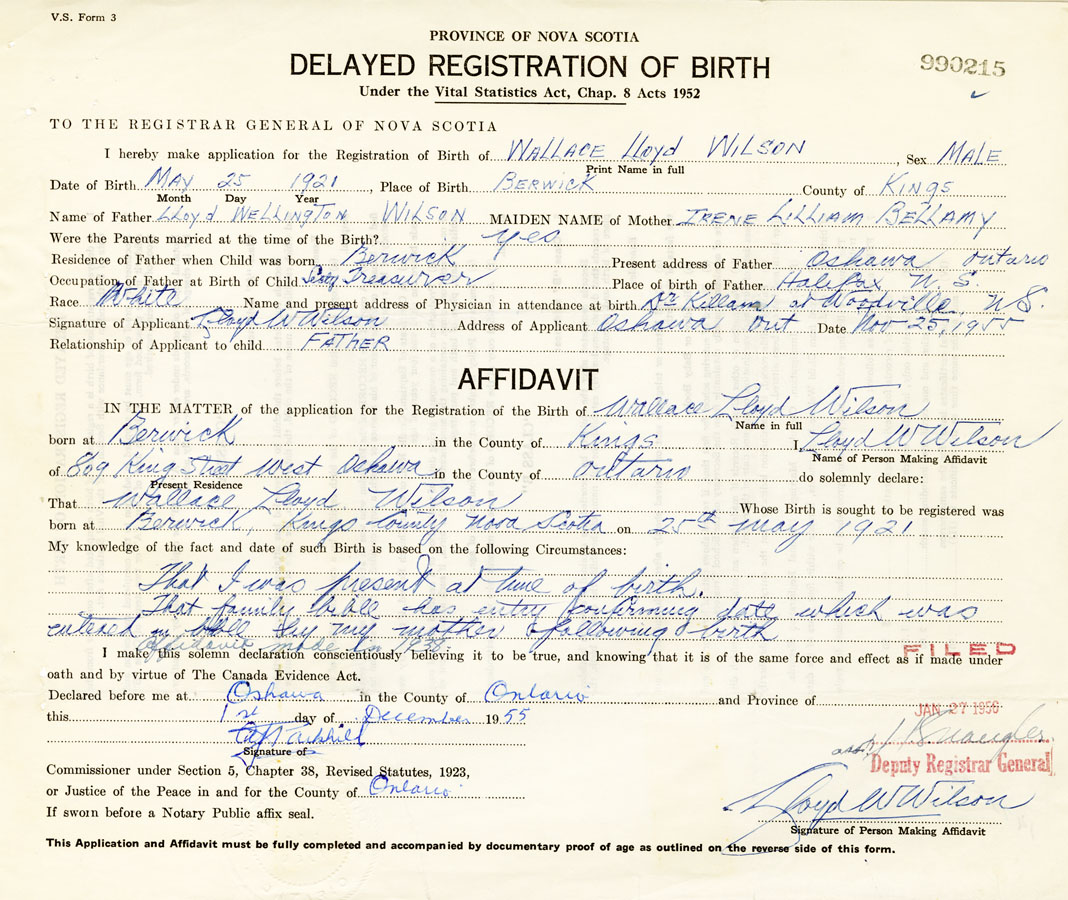 V.S. Form 3
PROVINCE OF NOVA SCOTIA
DELAYED REGISTRATION OF BIRTH
990215
Under the Vital Statistics Act, Chap. 8 Acts 1952
TO THE REGISTRAR GENERAL OF NOVA SCOTIA
I hereby make application for the Registration of Birth of WALLACE LLOYD WILSON, Sex MALE
Print Name in full
Date of Birth MAY 25 1921, Place of Birth BERWICK County of KINGS
Month Day Year
Name of Father LLOYD WELLINGTON WILSON MAIDEN NAME of Mother IRENE LILLIAM BELLAMY
Were the Parents married at the time of the Birth? yes
Residence of Father when Child was born Berwick Present address of Father Oshawa Ontario
Occupation of Father at Birth of Child Treasurer Place of birth of Father Halifax N. S.
Race White Name and present address of Physician in attendance at birth Dr Killam at Woodville N S.
Signature of Applicant Lloyd W Wilson Address of Applicant Oshawa Ont Date Nov 25, 1955
Relationship of Applicant to child FATHER
AFFIDAVIT
IN THE MATTER of the application for the Registration of the Birth of Wallace Lloyd Wilson
Name in full
born at Berwick in the County of Kings I, Lloyd W Wilson
Name of Person Making Affidavit
of 809 King Street West Oshawa in the County of Ontario do solemnly declare:
Present Residence
That Wallace Lloyd Wilson Whose Birth is sought to be registered was
born at Berwick, Kings County Nova Scotia on 25th May 1921
My knowledge of the fact and date of such Birth is based on the following Circumstances:
That I was present at time of birth.
That family bible has entry confirming date which was
entered in bible by my mother following birth
Affidavit made in 1938
I make this solemn declaration conscientiously believing it to be true, and knowing that it is of the same force and effect as if made under
FILED
oath and by virtue of The Canada Evidence Act.
Declared before me at Oshawa in the County of Ontario and Province of
JAN 27 1956
this 1st day of December 1955
Signature of
Deputy Registrar General
Commissioner under Section 5, Chapter 38, Revised Statutes, 1923,
or Justice of the Peace in and for the County of Ontario
Lloyd W Wilson
If sworn before a Notary Public affix seal.
Signature of Person Making Affidavit
This Application and Affidavit must be fully completed and accompanied by documentary proof of age as outlined on the reverse side of this form.